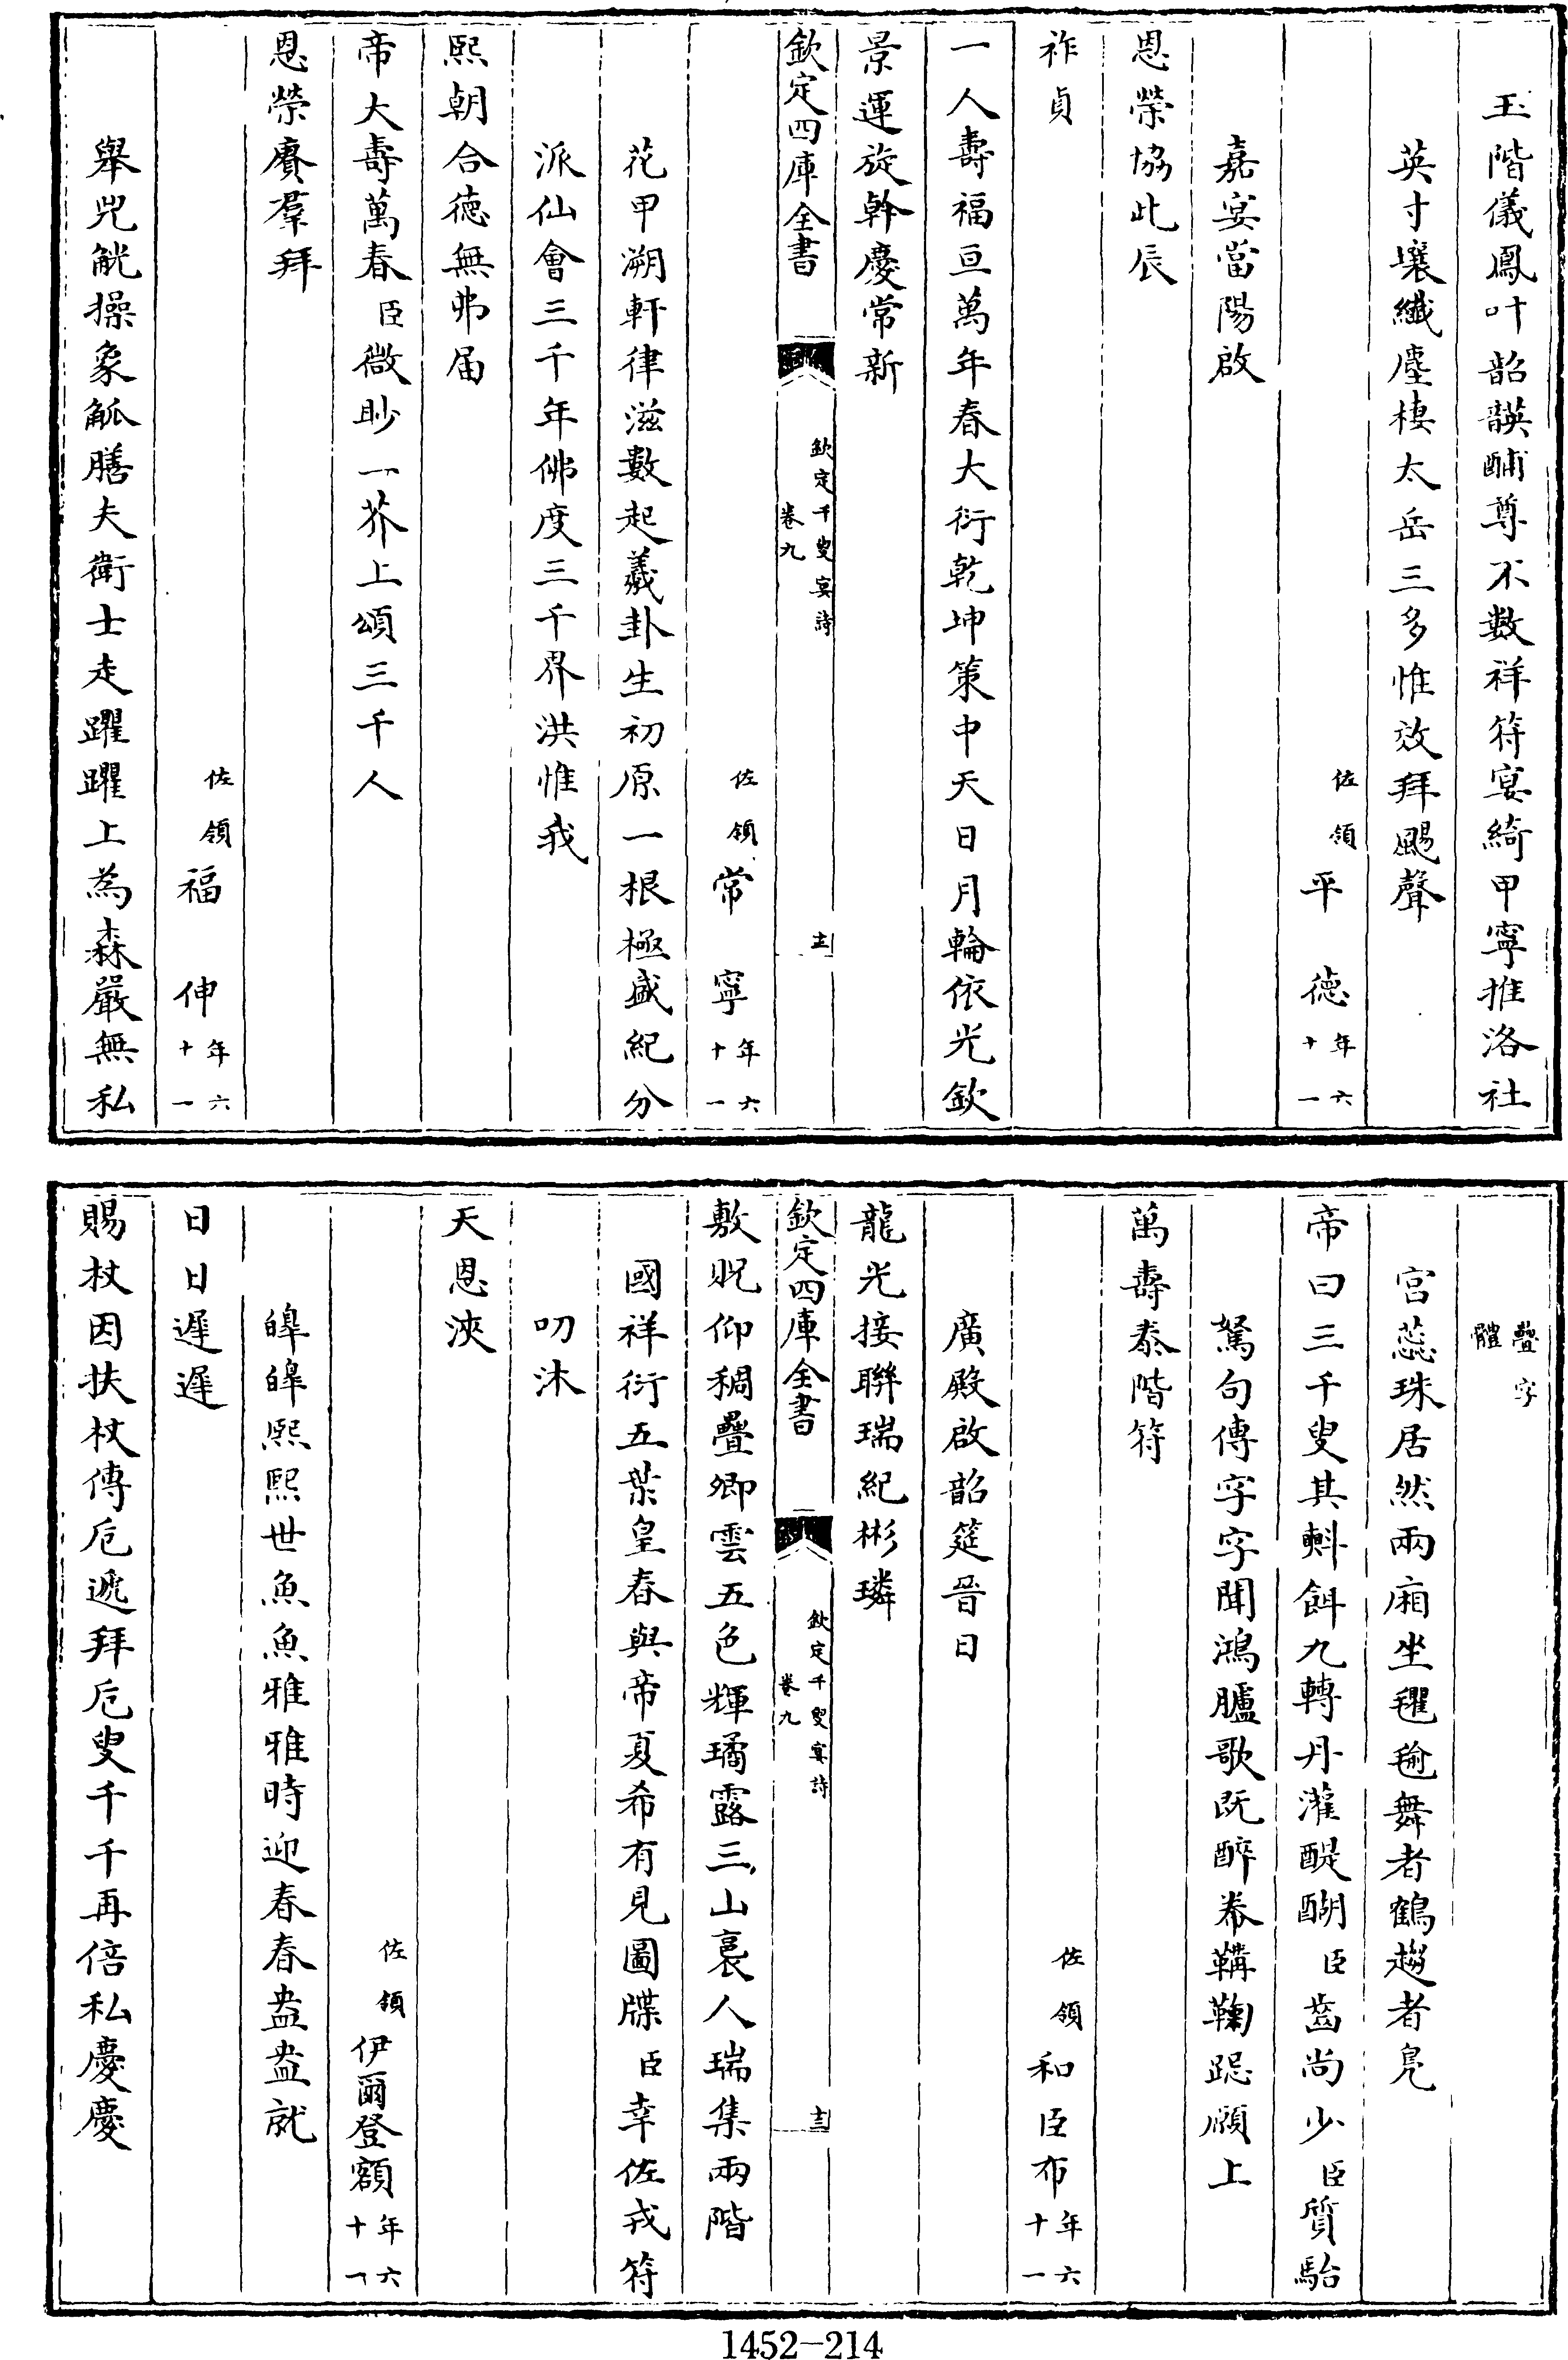 玉階儀鳳叶韶韺酺尊不數祥符宴綺甲寧推洛社
英寸壤纖塵棲太岳三多惟效拜颺聲
佐領平德年六十一
嘉宴當陽啟
恩榮協此辰
祚貞
一人壽福亘萬年春大衍乾坤策中天日月輪依光欽
景運旋斡慶常新
欽定四庫全書
欽定千叟宴詩
卷九
十二
佐領常寧年六十一
花甲溯軒律滋數起羲卦生初原一根極盛紀分
派仙會三千年佛度三千界洪惟我
熙朝合德無弗届
帝大壽萬春臣微眇一芥上頌三千人
恩榮賚羣拜
佐領福伸年六十一
舉兕觥操象觚膳夫衛士走躍躍上為森嚴無私
疊字體
宫蕊珠居然兩廂坐氍毹舞者鶴趨者鳧
帝曰三千叟其㪺餌九轉丹灌醍醐臣齒尚少臣質駘
駑句傳字字聞鴻臚歌既醉卷鞲鞠跽願上
萬壽泰階符
佐領和臣布年六十一
廣殿啟韶筵晉日
龍光接聯瑞紀彬璘
欽定四庫全書
欽定千叟宴詩
卷九
十三
敷貺仰稠疊卿雲五色輝璚露三山裛人瑞集兩階
國祥衍五葉皇春與帝夏希有見圖牒臣幸佐戎符
叨沐
天恩浹
佐領伊爾登額年六十一
皞皞熙熙世魚魚雅雅時迎春春盎盎就
日日遲遲
賜杖因扶杖傳卮遞拜卮叟千千再倍私慶慶
1452-214